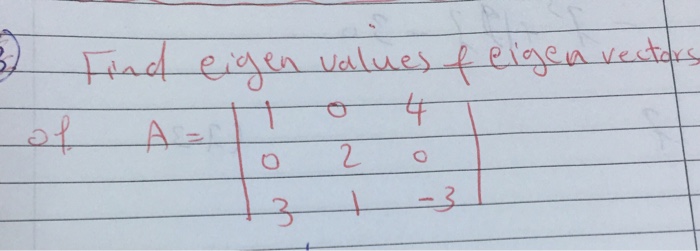 3) Find eigen values & eigen vectors
of A = | 1 0 4 |
0 2 0
3 1 -3